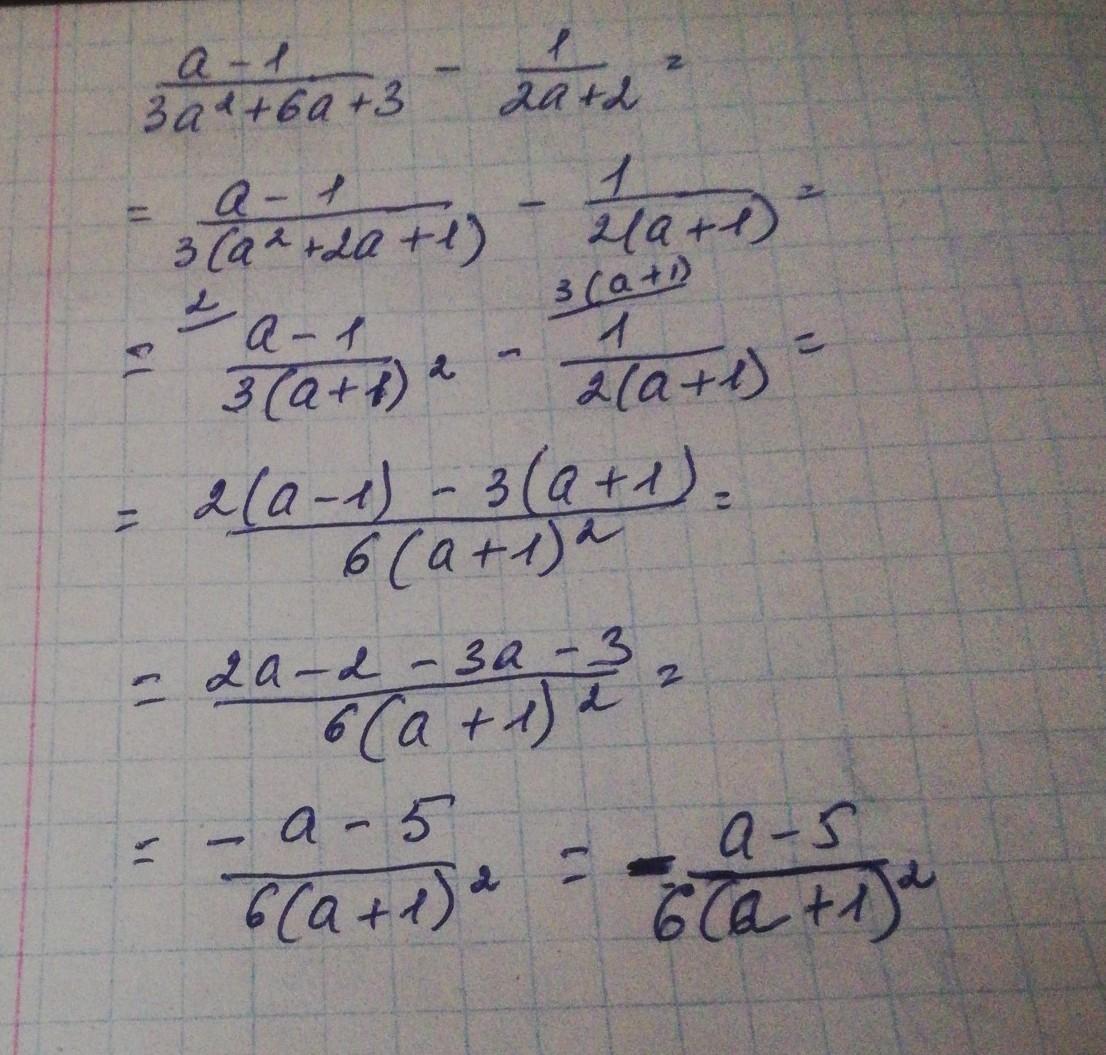 (a - 1)/(3a² + 6a + 3) - 1/(2a + 2) =
= (a - 1)/(3(a² + 2a + 1)) - 1/(2(a + 1)) =
2 3(a + 1)
= (a - 1)/(3(a + 1)²) - 1/(2(a + 1)) =
= (2(a - 1) - 3(a + 1))/(6(a + 1)²) =
= (2a - 2 - 3a - 3)/(6(a + 1)²) =
= (- a - 5)/(6(a + 1)²) = - (a - 5)/(6(a + 1)²)